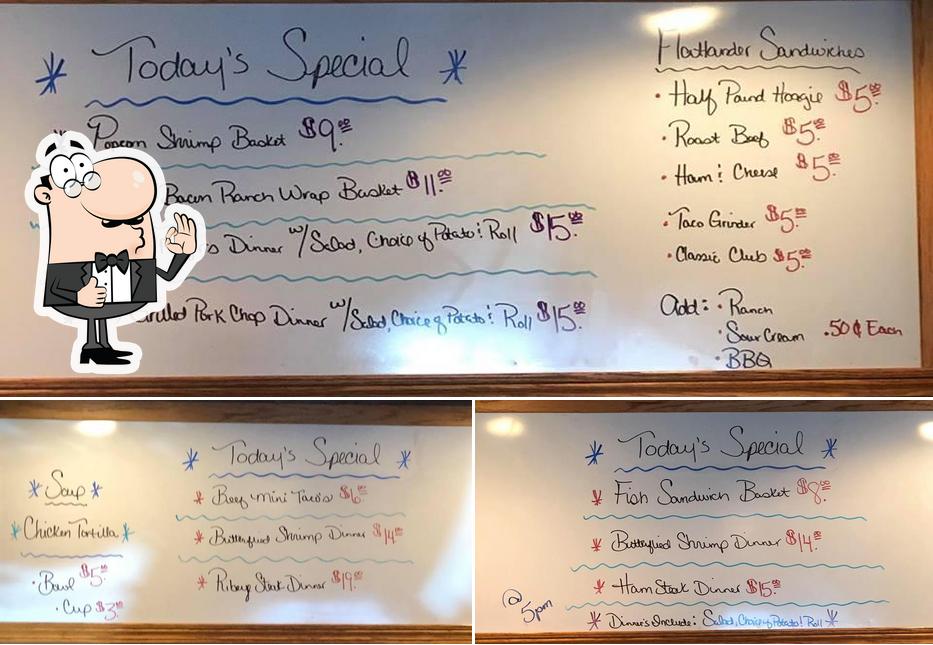 Today's Special
Popcorn Shrimp Basket $9.00
Bacon Ranch Wrap Basket $11.00
Dinner w/ Salad, Choice of Potato & Roll $15.00
Pork Chop Dinner w/ Salad, Choice of Potato & Roll $15.00
Flatlander Sandwiches
• Half Pound Hoagie $5.00
• Roast Beef $5.00
• Ham & Cheese $5.00
• Taco Grinder $5.00
• Classic Club $5.00
Add: • Ranch
• Sour Cream .50¢ Each
• BBQ
* Soup *
* Chicken Tortilla *
• Bowl $5.00
• Cup $3.00
* Today's Special *
* Beef Mini Taco's $6.00
* Butterflied Shrimp Dinner $14.00
* Ribeye Steak Dinner $19.00
* Today's Special *
* Fish Sandwich Basket $8.00
* Butterflied Shrimp Dinner $14.00
* Ham Steak Dinner $15.00
@ 5pm
* Dinner's Include: Salad, Choice of Potato & Roll *